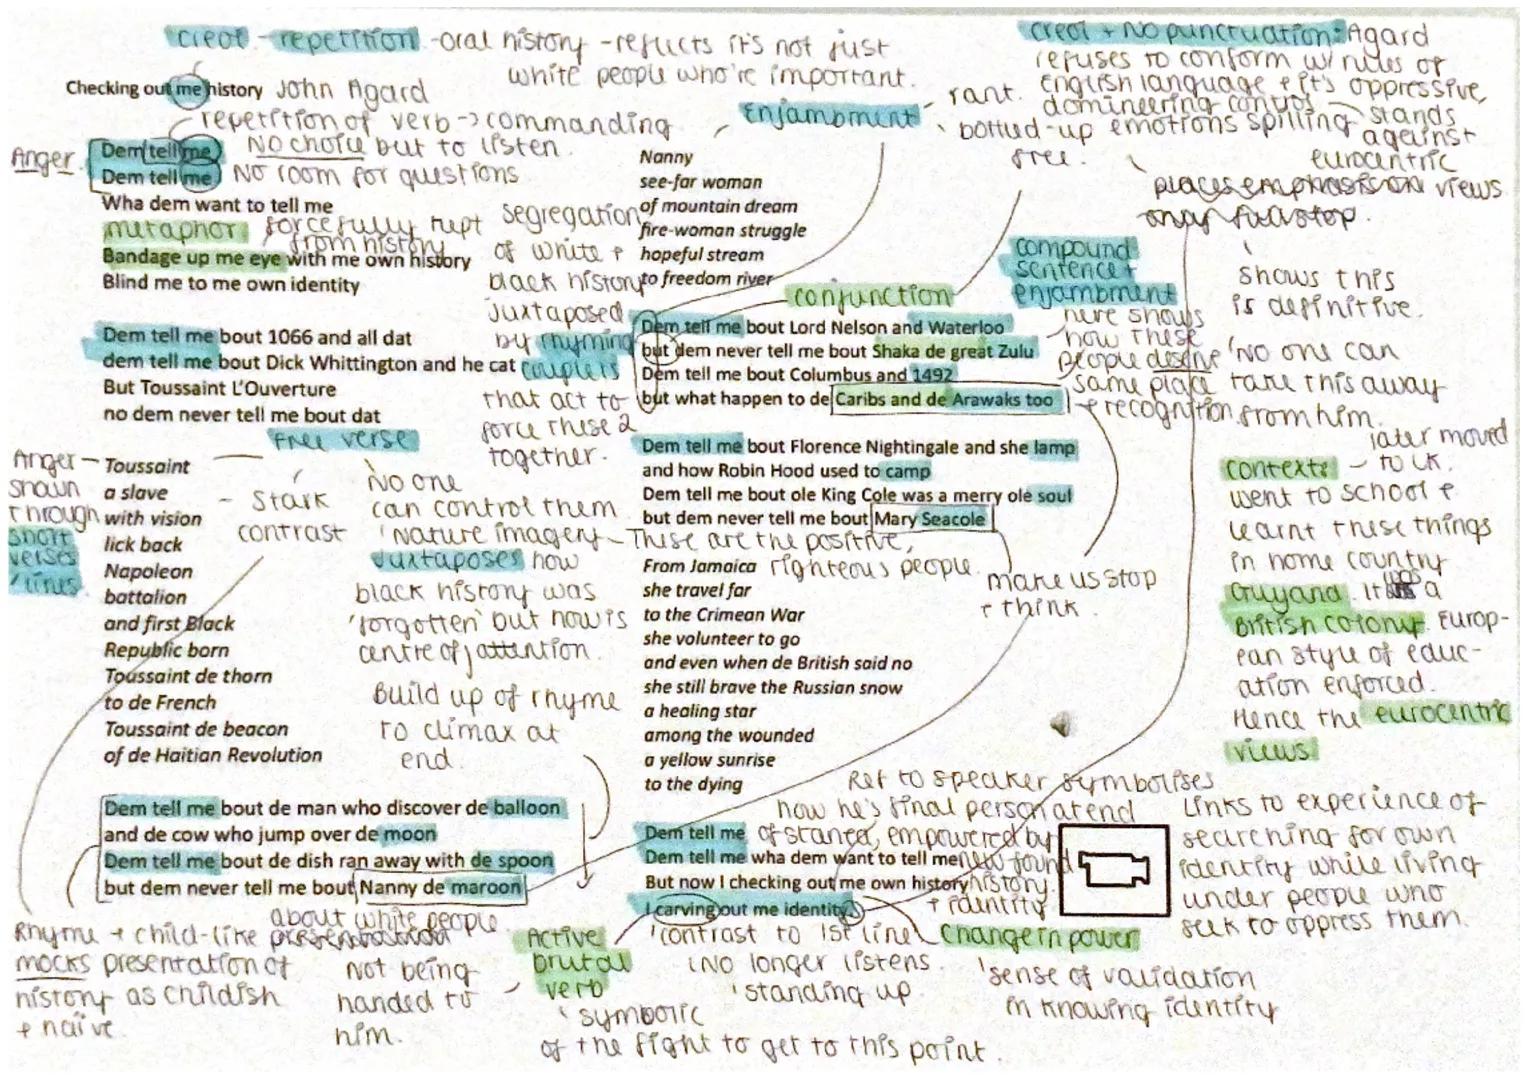 creol - repetition - oral history - reflects it's not just
white people who're important.
Checking out me history John Agard
repetition of verb -> commanding
NO choice but to listen.
No room for questions
Anger.
Dem tell me
Dem tell me
Wha dem want to tell me
metaphor forcefully kept
from history
Bandage up me eye with me own history
Blind me to me own identity
Dem tell me bout 1066 and all dat
dem tell me bout Dick Whittington and he cat
But Toussaint L'Ouverture
no dem never tell me bout dat
segregation
of white +
black history
juxtaposed
by rhyming
couplets
that act to
force these 2
together.
free verse
Anger
shown
through
short
verses
/lines.
Toussaint
a slave
with vision
lick back
Napoleon
battalion
and first Black
Republic born
Toussaint de thorn
to de French
Toussaint de beacon
of de Haitian Revolution
- Stark
contrast
No one
can control them
'Nature imagery
juxtaposes how
black history was
'forgotten' but now is
centre of attention.
Build up of rhyme
to climax at
end.
Dem tell me bout de man who discover de balloon
and de cow who jump over de moon
Dem tell me bout de dish ran away with de spoon
but dem never tell me bout Nanny de maroon
about white people.
Rhyme + child-like
mocks presentation of
history as childish
+ naïve.
Not being
handed to
him.
Enjambment
rant.
bottled-up emotions spilling
free.
Nanny
see-far woman
of mountain dream
fire-woman struggle
hopeful stream
to freedom river
conjunction
Dem tell me bout Lord Nelson and Waterloo
but dem never tell me bout Shaka de great Zulu
Dem tell me bout Columbus and 1492
but what happen to de Caribs and de Arawaks too
Dem tell me bout Florence Nightingale and she lamp
and how Robin Hood used to camp
Dem tell me bout ole King Cole was a merry ole soul
but dem never tell me bout Mary Seacole
These are the positive,
righteous people.
make us stop
+ think.
From Jamaica
she travel far
to the Crimean War
she volunteer to go
and even when de British said no
she still brave the Russian snow
a healing star
among the wounded
a yellow sunrise
to the dying
Ref to speaker symbolises
how he's final person at end
of stanza, empowered by
new found
history
+ identity
Dem tell me
Dem tell me wha dem want to tell me
But now I checking out me own history
I carving out me identity.
Active
brutal
verb
'symbolic
of the fight to get to this point.
'contrast to 1st line
No longer listens.
'standing up.
Change in power
'sense of validation
in knowing identity
creol + No punctuation: Agard
refuses to conform w/ rules of
english language + it's oppressive,
domineering control
stands
against
eurocentric
views.
places emphasis on
full stop.
shows this
is definitive.
'No one can
take this away
from him.
compound
sentence +
enjambment
here shows
how these
people deserve
same place
+ recognition
Context: - later moved
to UK.
Went to school +
learnt these things
in home country
Guyana. It was a
British Colony. Europ-
ean style of educ-
ation enforced.
Hence the eurocentric
views
Links to experience of
searching for own
identity while living
under people who
seek to oppress them.